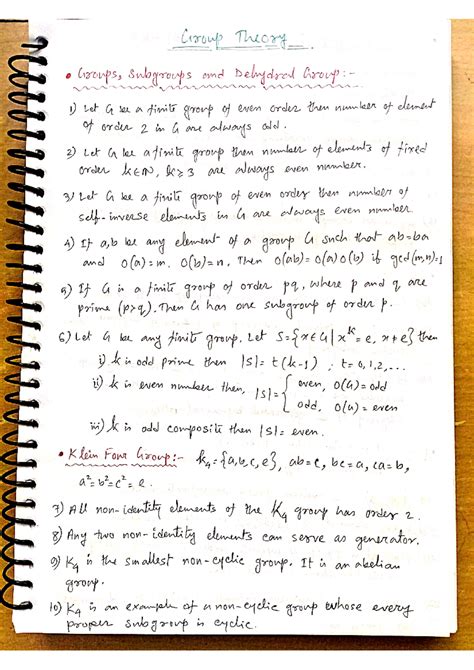 Group Theory
• Groups, Subgroups and Dehydral Group:-
1) Let G be a finite group of even order then number of element
of order 2 in G are always odd.
2) Let G be a finite group then number of elements of fixed
order k∈N, k≥3 are always even number.
3) Let G be a finite group of even order then number of
self-inverse elements in G are always even number.
4) If a,b be any element of a group G such that ab=ba
and O(a)=m. O(b)=n, Then O(ab)=O(a)O(b) if gcd(m,n)=1
5) If G is a finite group of order pq, where p and q are
prime (p>q). Then G has one subgroup of order p.
6) Let G be any finite group. Let S={x∈G | x^k=e, x≠e} then
i) k is odd prime then |S|=t(k-1) ; t=0,1,2,...
ii) k is even number then, |S|={ even, O(G)=odd
odd, O(G)=even
iii) k is odd composite then |S|=even.
• Klein Four Group:- K₄={a,b,c,e}, ab=c, bc=a, ca=b,
a²=b²=c²=e.
7) All non-identity elements of the K₄ group has order 2.
8) Any two non-identity elements can serve as generator.
9) K₄ is the smallest non-cyclic group. It is an abelian
group.
10) K₄ is an example of a non-cyclic group whose every
proper subgroup is cyclic.